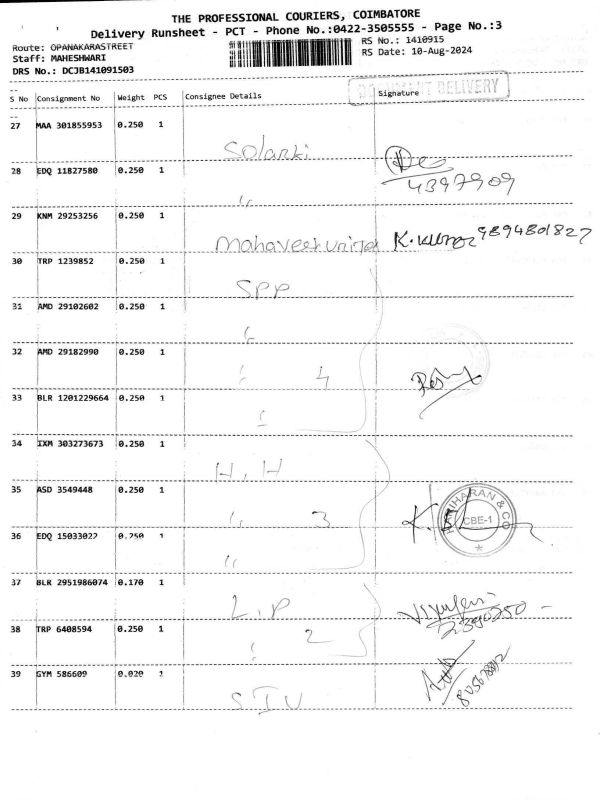 THE PROFESSIONAL COURIERS, COIMBATORE
Delivery Runsheet - PCT - Phone No.:0422-3505555 - Page No.:3
Route: OPANAKARASTREET
RS No.: 1410915
Staff: MAHESHWARI
RS Date: 10-Aug-2024
DRS No.: DCJB141091503
DOCUMENT DELIVERY
S No Consignment No Weight PCS Consignee Details Signature
27 MAA 301855953 0.250 1
Solanki
28 EDQ 11827580 0.250 1
4397909
29 KNM 29253256 0.250 1
K. Kumar 9894801827
30 TRP 1239852 0.250 1
SPP
31 AMD 29102602 0.250 1
32 AMD 29182990 0.250 1
4
33 BLR 1201229664 0.250 1
34 IXM 303273673 0.250 1
H.H
35 ASD 3549448 0.250 1
3
HARIHARAN & CO
CBE-1
36 EDQ 15033022 0.250 1
37 BLR 2951986074 0.170 1
L.P
2390250
38 TRP 6408594 0.250 1
2
39 GYM 586609 0.020 1
SIV